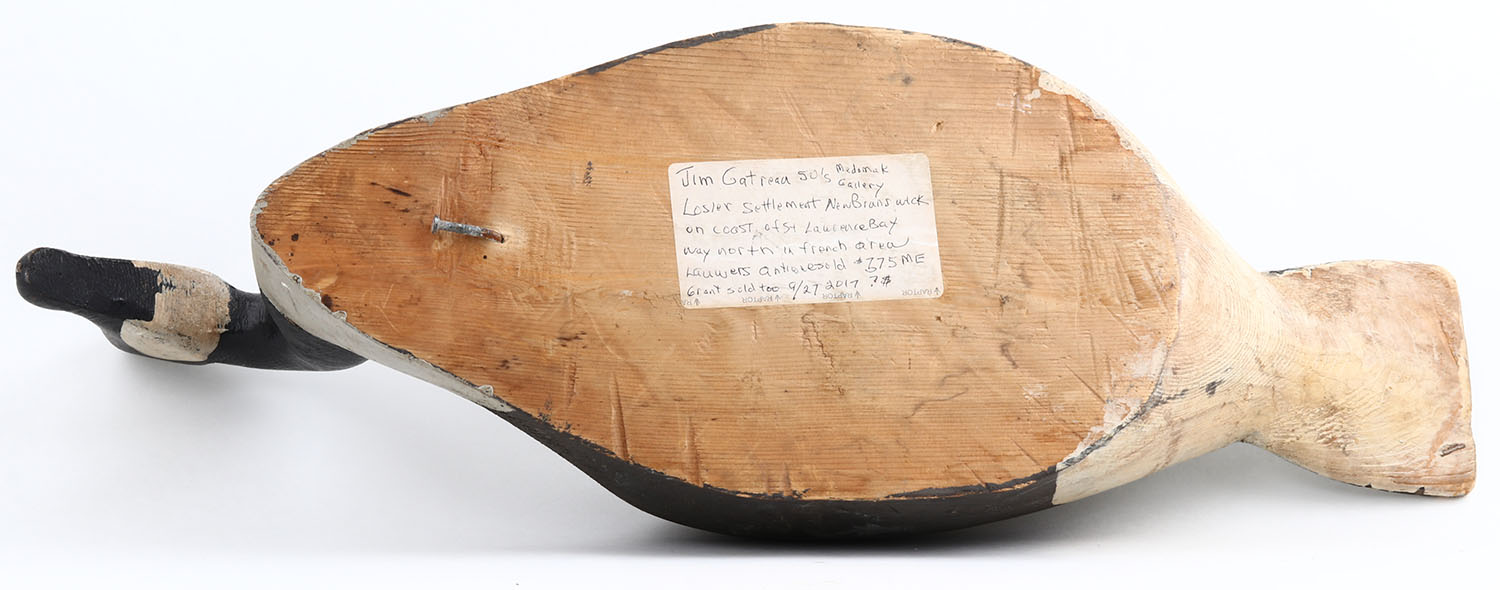 Jim Gatreau 50's Medomak
Gallery
Losier Settlement NewBranswick
on coast of St LawrenceBay
way north in french area
Lauwers Antiquesold $375 ME
Grant sold too 9/27 2017 ?$
RAPTOR RAPTOR RAPTOR RAPTOR